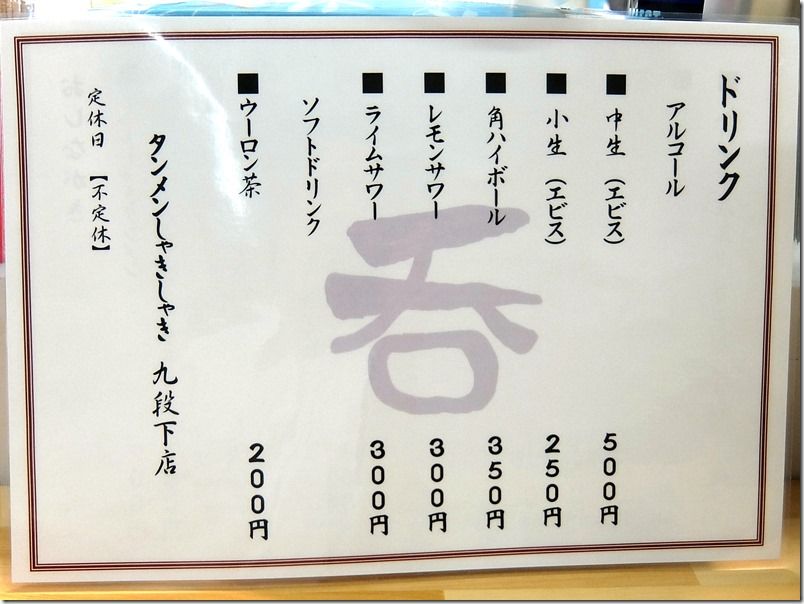 ドリンク
アルコール
■中生（エビス） 500円
■小生（エビス） 250円
■角ハイボール 350円
■レモンサワー 300円
■ライムサワー 300円
ソフトドリンク
■ウーロン茶 200円
タンメンしゃきしゃき 九段下店
定休日 【不定休】
呑
おしながき